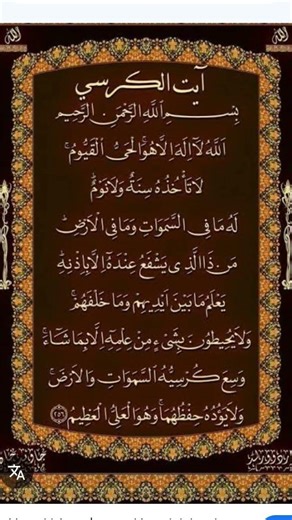 آيت الكرسي
بِسْمِ اللَّهِ الرَّحْمَٰنِ الرَّحِيمِ
اَللَّهُ لَآ اِلٰهَ اِلَّا هُوَ الْحَيُّ الْقَيُّومُ
لَا تَأْخُذُهُ سِنَةٌ وَلَا نَوْمٌ
لَهُ مَا فِي السَّمٰوَاتِ وَمَا فِي الْاَرْضِ
مَنْ ذَا الَّذِي يَشْفَعُ عِنْدَهُ اِلَّا بِاِذْنِهِ
يَعْلَمُ مَا بَيْنَ اَيْدِيهِمْ وَمَا خَلْفَهُمْ
وَلَا يُحِيطُونَ بِشَيْءٍ مِنْ عِلْمِهِ اِلَّا بِمَا شَآءَ
وَسِعَ كُرْسِيُّهُ السَّمٰوَاتِ وَالْاَرْضَ
وَلَا يَؤُدُهُ حِفْظُهُمَا وَهُوَ الْعَلِيُّ الْعَظِيمُ ﴿٢٥٥﴾